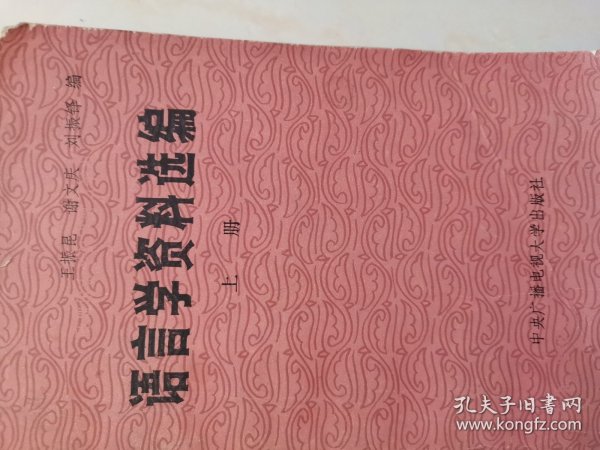 王振昆 谢文庆 刘振铎 编
语言学资料选编
上册
中央广播电视大学出版社
孔夫子旧书网
www.kongfz.com